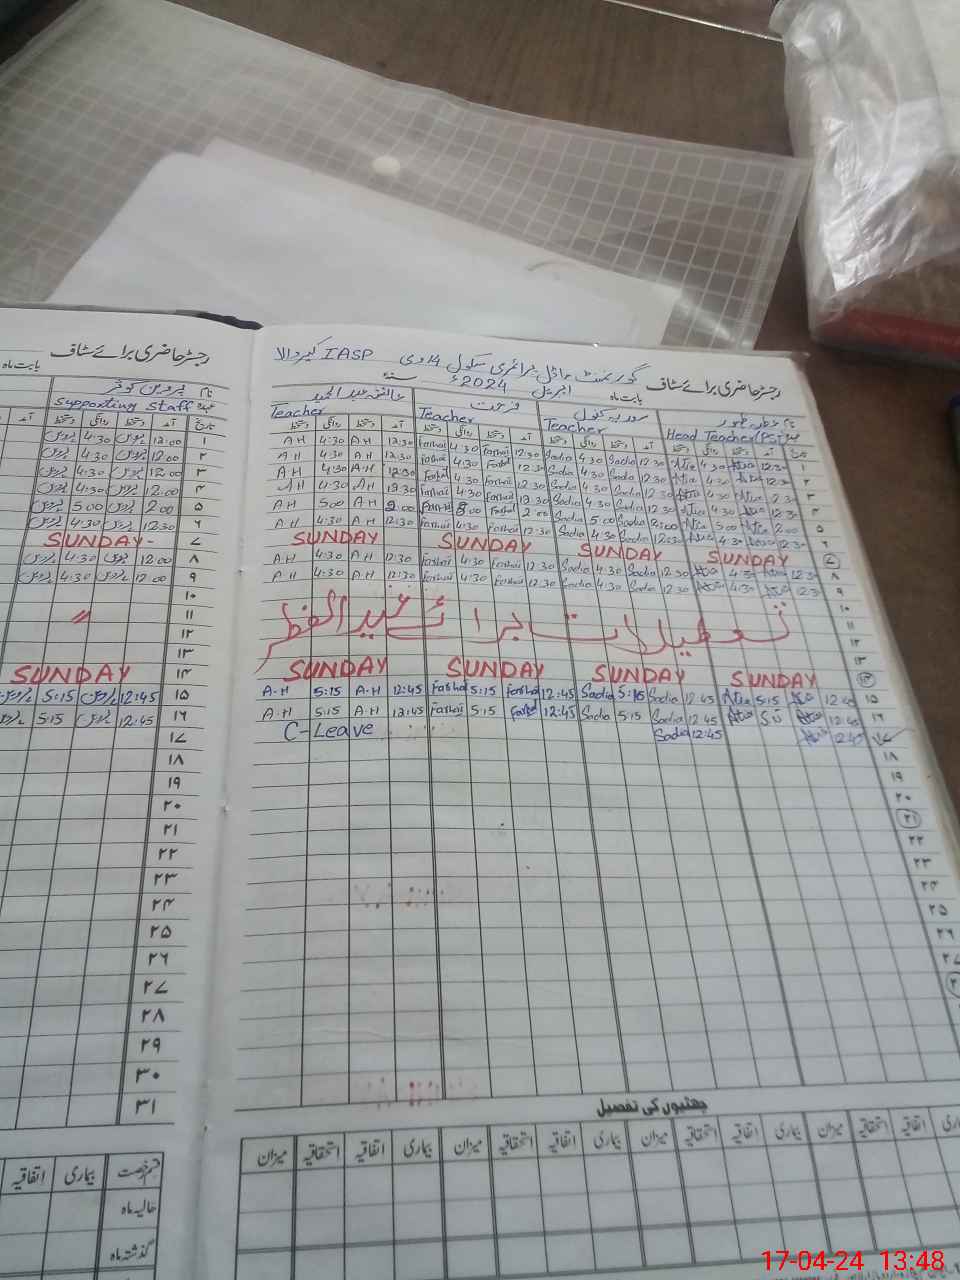 رجسٹر حاضری برائے سٹاف
بابت ماہ
نام پروین کوثر
عہدہ Supporting Staff
تاریخ آمد دستخط روانگی دستخط
۱ 12:00 پروین 4:30 پروین
۲ 12:00 پروین 4:30 پروین
۳ 12:00 پروین 4:30 پروین
۴ 12:00 پروین 4:30 پروین
۵ 2:00 پروین 5:00 پروین
۶ 12:30 پروین 4:30 پروین
۷ SUNDAY
۸ 12:00 پروین 4:30 پروین
۹ 12:00 پروین 4:30 پروین
۱۰
۱۱ "
۱۲
۱۳
۱۴ SUNDAY
۱۵ 12:45 پروین 5:15 پروین
۱۶ 12:45 پروین 5:15 پروین
۱۷
۱۸
۱۹
۲۰
۲۱
۲۲
۲۳
۲۴
۲۵
۲۶
۲۷
۲۸
۲۹
۳۰
۳۱
قسم رخصت بیماری اتفاقیہ
حالیہ ماہ
گذشتہ ماہ
رجسٹر حاضری برائے سٹاف گورنمنٹ ماڈل پرائمری سکول IASP
بابت ماہ اپریل 2024ء
نام
Head Teacher (PST) Teacher Teacher Teacher
تاریخ آمد دستخط روانگی دستخط آمد دستخط روانگی دستخط آمد دستخط روانگی دستخط آمد دستخط روانگی دستخط
A H 4:30 A H 12:30 Farhat 4:30 Farhat 12:30 Sadia 4:30 Sadia 12:30 Atia 4:30 Atia 12:30 ۱
A H 4:30 A H 12:30 Farhat 4:30 Farhat 12:30 Sadia 4:30 Sadia 12:30 Atia 4:30 Atia 12:30 ۲
A H 4:30 A H 12:30 Farhat 4:30 Farhat 12:30 Sadia 4:30 Sadia 12:30 Atia 4:30 Atia 12:30 ۳
A H 4:30 A H 12:30 Farhat 4:30 Farhat 12:30 Sadia 4:30 Sadia 12:30 Atia 4:30 Atia 12:30 ۴
A H 5:00 A H 2:00 Farhat 5:00 Farhat 2:00 Sadia 5:00 Sadia 2:00 Atia 5:00 Atia 2:00 ۵
A H 4:30 A H 12:30 Farhat 4:30 Farhat 12:30 Sadia 4:30 Sadia 12:30 Atia 4:30 Atia 12:30 ۶
SUNDAY SUNDAY SUNDAY SUNDAY ۷
A H 4:30 A H 12:30 Farhat 4:30 Farhat 12:30 Sadia 4:30 Sadia 12:30 Atia 4:30 Atia 12:30 ۸
A H 4:30 A H 12:30 Farhat 4:30 Farhat 12:30 Sadia 4:30 Sadia 12:30 Atia 4:30 Atia 12:30 ۹
۱۰
تعطیلات برائے عیدالفطر ۱۱
۱۲
۱۳
SUNDAY SUNDAY SUNDAY SUNDAY ۱۴
A-H 5:15 A-H 12:45 Farhat 5:15 Farhat 12:45 Sadia 5:15 Sadia 12:45 Atia 5:15 Atia 12:45 ۱۵
A-H 5:15 A-H 12:45 Farhat 5:15 Farhat 12:45 Sadia 5:15 Sadia 12:45 Atia 5:15 Atia 12:45 ۱۶
C-Leave Sadia 12:45 Atia 12:45 ۱۷
۱۸
۱۹
۲۰
۲۱
۲۲
۲۳
۲۴
۲۵
۲۶
۲۷
چھٹیوں کی تفصیل
بیماری اتفاقیہ استحقاقیہ میزان بیماری اتفاقیہ استحقاقیہ میزان بیماری اتفاقیہ استحقاقیہ میزان بیماری اتفاقیہ استحقاقیہ میزان
17-04-24 13:48